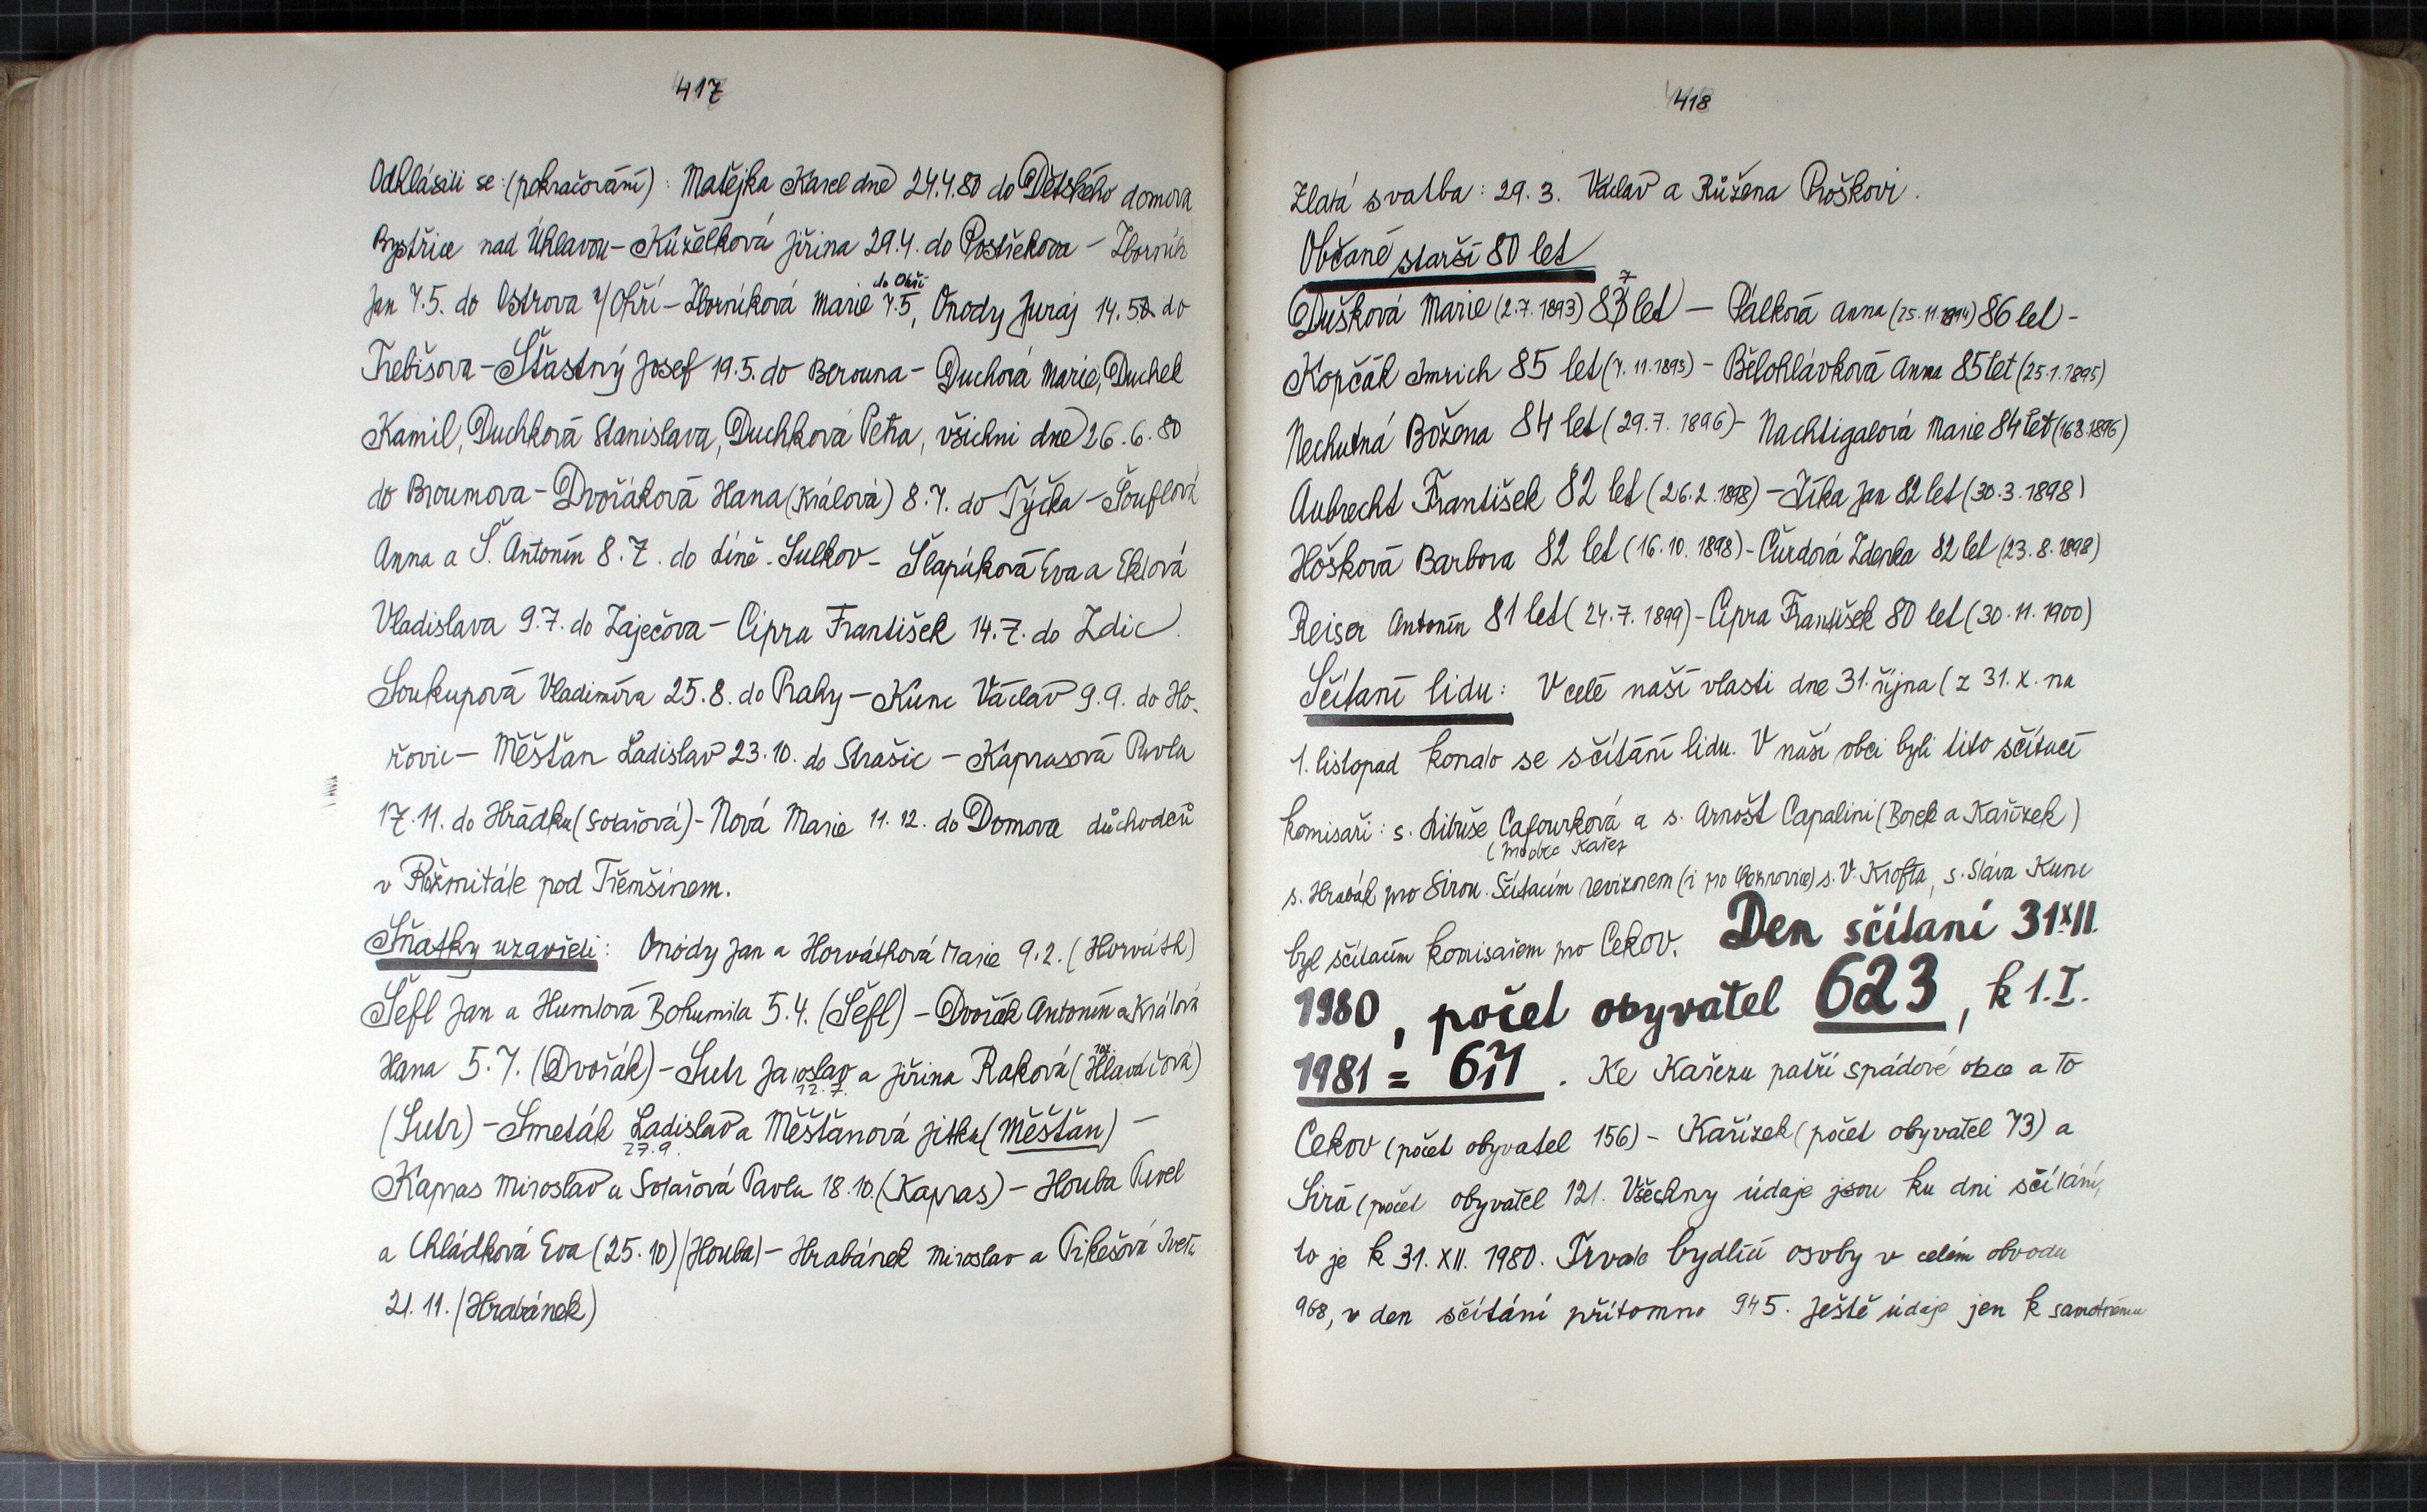 417
Odhlásili se: (pokračování): Matějka Karel dne 24.4.80 do Dětského domova
Bystřice nad Úhlavou – Kuželková Jiřina 29.4. do Postřekova – Zborník
do Ohří
Jan 7.5. do Ostrova n/Ohří – Zborníková Marie 7.5, Onody Juraj 14.5 do
Trebišova – Šťastný Josef 19.5. do Berouna – Duchová Marie, Duchek
Kamil, Duchková Stanislava, Duchková Petra, všichni dne 26.6.80
do Broumova – Dvořáková Hana (Králová) 8.7. do Týčka – Šouflová
Anna a Š. Antonín 8.7. do Líně - Sulkov – Šlapáková Eva a Eklová
Vladislava 9.7. do Zaječova – Cipra František 14.7. do Zdic.
Soukupová Vladimíra 25.8. do Prahy – Kunc Václav 9.9. do Ho-
řovic – Měšťan Ladislav 23.10. do Strašic – Kaprasová Pavla
17.11. do Hrádku (Solařová) - Nová Marie 11.12. do Domova důchodců
v Rožmitále pod Třemšínem.
Sňatky uzavřeli: Onódy Jan a Horvátková Marie 9.2. (Horváth)
Šefl Jan a Humlová Bohumila 5.4. (Šefl) – Dvořák Antonín a Králová
Hana 5.7. (Dvořák) – Sutr Jaroslav a Jiřina Raková (roz. Hlaváčová)
12.7.
(Sutr) – Smeták Ladislav a Měšťanová Jitka (Měšťan) –
27.9.
Kapras Miroslav a Solařová Pavla 18.10. (Kapras) – Houba Pavel
a Chládková Eva (25.10) (Houba) – Hrabánek Miroslav a Pikešová Iveta
21.11. (Hrabánek)
418
Zlatá svatba: 29.3. Václav a Růžena Roškovi.
Občané starší 80 let
7
Dušková Marie (2.7.1893) 83 let — Pálková Anna (25.11.1894) 86 let -
Kopčák Imrich 85 let (7.11.1895) – Bělohlávková Anna 85 let (25.1.1895)
Nechutná Božena 84 let (29.7.1896) – Nachtigalová Marie 84 let (16.8.1896)
Aubrecht František 82 let (26.2.1898) – Jíka Jan 82 let (30.3.1898)
Hošková Barbora 82 let (16.10.1898) – Čurdová Zdenka 82 let (23.8.1898)
Reiser Antonín 81 let (24.7.1899) – Cipra František 80 let (30.11.1900)
Sčítaní lidu: V celé naší vlasti dne 31. října (z 31.X. na
1. listopad konalo se sčítání lidu. V naší obci byli tito sčítací
komisaři: s. Libuše Cafourková a s. Arnošt Capalini (Borek a Kařízek)
(pro obec Kařez
s. Hrabák pro Sirou. Sčítacím revizorem (i pro) s. V. Krofta, s. Sláva Kunc
byl sčítacím komisařem pro Cekov. Den sčítaní 31.XII.
1980, počet obyvatel 623, k 1.I.
1981 = 611. Ke Kařezu patří spádové obce a to
Cekov (počet obyvatel 156) – Kařízek (počet obyvatel 73) a
Sirá (počet obyvatel 121. Všechny údaje jsou ku dni sčítání,
to je k 31.XII.1980. Trvale bydlící osoby v celém obvodu
968, v den sčítání přítomno 945. Ještě údaje jen k samotnému